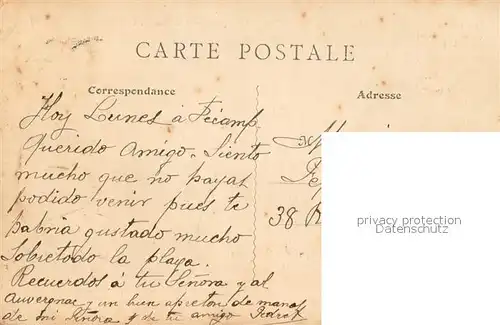 CARTE POSTALE
Correspondance
Adresse
Hoy Lunes á Fécamp
Querido Amigo. Siento
mucho que no hayas
podido venir pues te
habria gustado mucho
Sobretodo la playa.
Recuerdos á tu Señora y al
Auvergnac y un buen apreton de manos
de mi Señora y de tu amigo
38 R
privacy protection
ansichtskarten-center